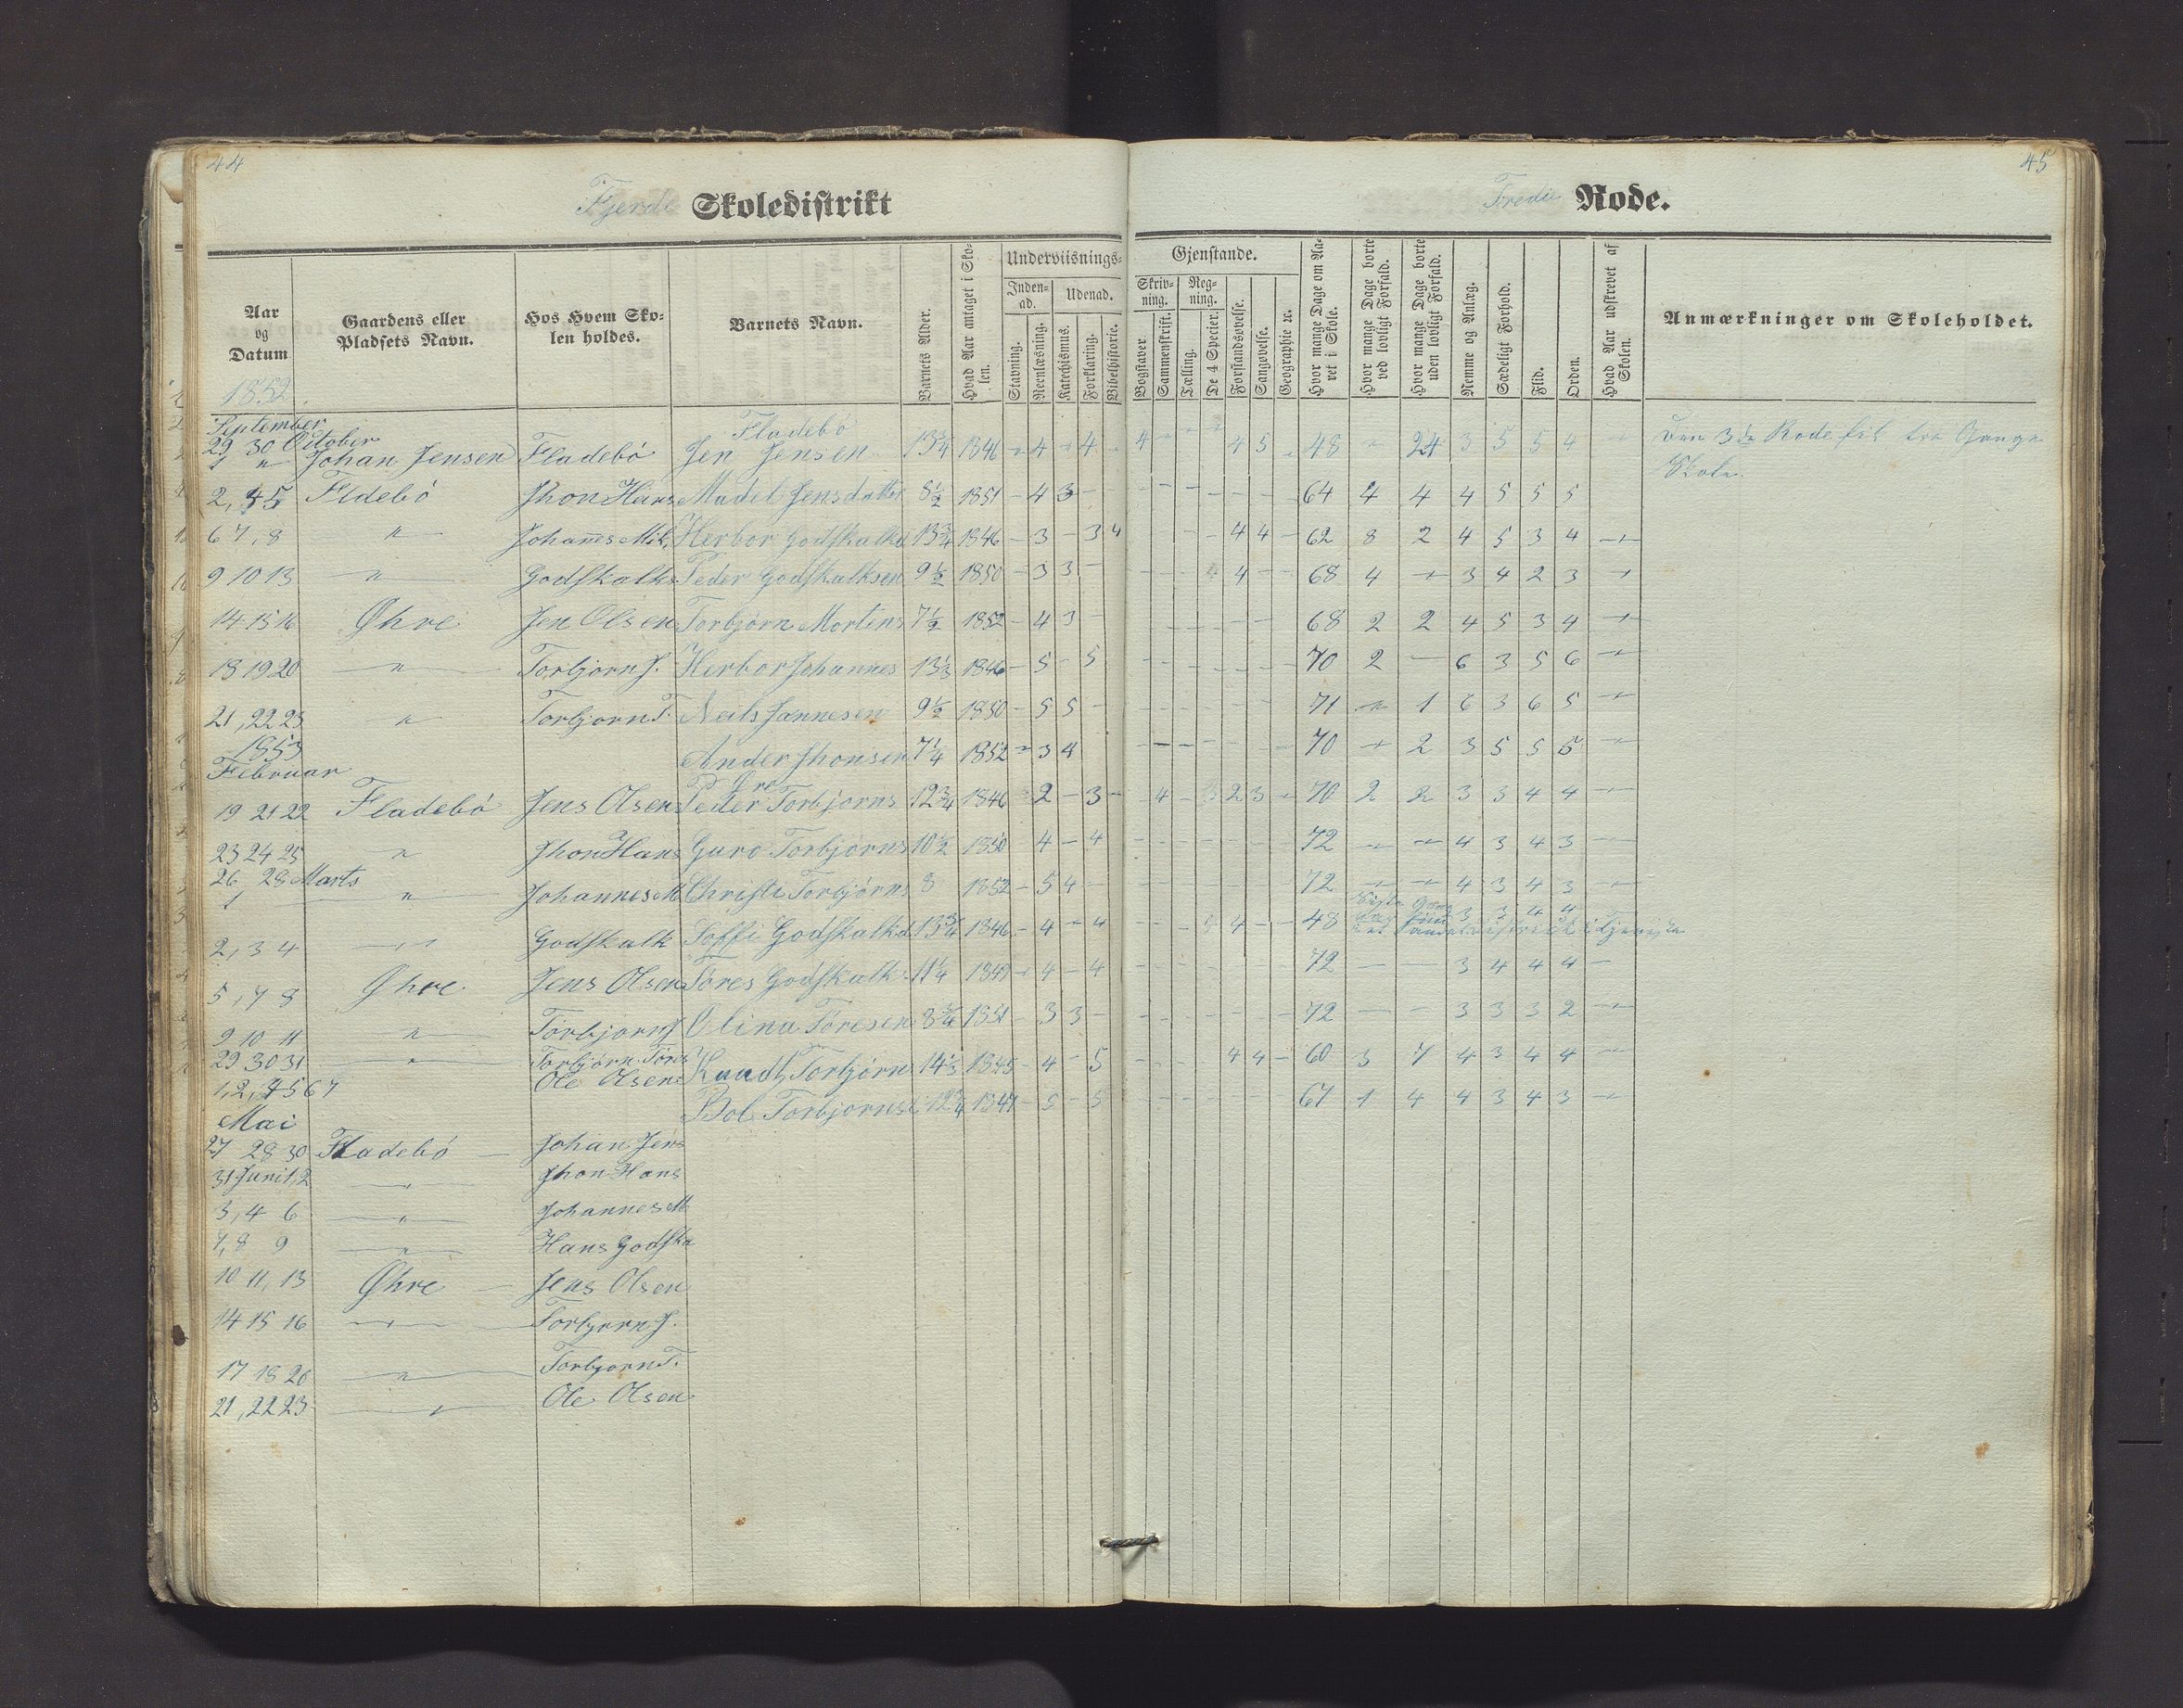 44
45
Fjerde Skoledistrikt
Tredie Rode.
Aar og Datum
Gaardens eller Pladsets Navn.
Hos Hvem Skolen holdes.
Barnets Navn.
Barnets Alder.
Hvad Aar antaget i Skolen.
Underviisnings-
Gjenstande.
Inden-ad.
Udenad.
Skriv-ning.
Reg-ning.
Stavning.
Reenlæsning.
Katechismus.
Forklaring.
Bibelhistorie.
Bogstaver.
Sammenskrift.
Tælling.
De 4 Specier.
Forstandsøvelse.
Sangøvelse.
Geographie ꝛc.
Hvor mange Dage om Aaret i Skole.
Hvor mange Dage borte ved lovligt Forfald.
Hvor mange Dage borte uden lovligt Forfald.
Nemme og Anlæg.
Sædeligt Forhold.
Flid.
Orden.
Hvad Aar udskrevet af Skolen.
Anmærkninger om Skoleholdet.
1852
September
Fladebó
29 30 October
1 " Johan Jensen Fladebó Jen Jensen 13¾ 1846 4 4 4 4 5 48 24 3 5 5 4 Den 3die Rode fik tre Gange
Skole.
2, 4 5 Fldebó Jhon Hans Madel Jensdatter 8½ 1851 - 4 3 - 64 4 4 4 5 5 5
6 7, 8 " Johannes Mik. Herbor Godskalkd 13¾ 1846 - 3 - 3 4 4 4 - 62 8 2 4 5 3 4
9 10 13 " Godskalk Peder Godskalksen 9½ 1850 - 3 3 - 4 68 4 3 4 2 3
14 15 16 Øhre Jen Olsen Torbjørn Mortins 7½ 1852 - 4 3 - 68 2 2 4 5 3 4
18 19 20 " Torbjorn J. Herbor Johannes 13⅓ 1846 - 5 - 5 70 2 - 6 3 5 6
21, 22 23 " Torbjorn T. Neils Jannesen 9½ 1850 - 5 5 - 71 " 1 6 3 6 5
1853
Ander Jhonsen 7¼ 1852 - 3 4 70 2 3 5 5 5
Februar
19 21 22 Fladebó Jens Olsen Peder Torbjorns 12¾ 1846 2 - 3 - 4 2 3 70 2 2 3 3 4 4
23 24 25 " Jhon Hans Guro Torbjørns 10½ 1850 4 - 4 72 4 3 4 3
26 28 Marts
1 " Johannes M Christi Torbjørns 8 1852 - 5 4 - 72 4 3 4 3
2, 3 4 Godskalk Søffi Godskalkd 13¾ 1846 - 4 4 4 - 48 3 3 4 4
5, 7 8 Øhre Jens Olsen Tøres Godskalk 11¼ 1847 4 - 4 72 - - 3 4 4 4 -
9 10 11 " Tørbjorn J Olina Tøresen 8¾ 1851 - 3 3 - 72 - - 3 3 3 2
29 30 31 " Torbjørn Tøres Knudt Torbjørn 14⅓ 1845 - 4 - 5 4 4 - 60 3 7 4 3 4 4
1, 2, 4 5 6 7 Ole Olsen
Bol Torbjornsd 12¾ 1847 - 5 - 5 67 1 4 4 3 4 3
Mai
27 28 30 Fladebó Johan Jens
31 Juni 1, 2 " Jhon Hans
3, 4 6 " Johannes M
7, 8 9 " Hans Godska
10 11, 13 Øhre Jens Olsen
14 15 16 Torbjørn J.
17 18 20 " Torbjorn T.
21, 22 23 " Ole Olsen